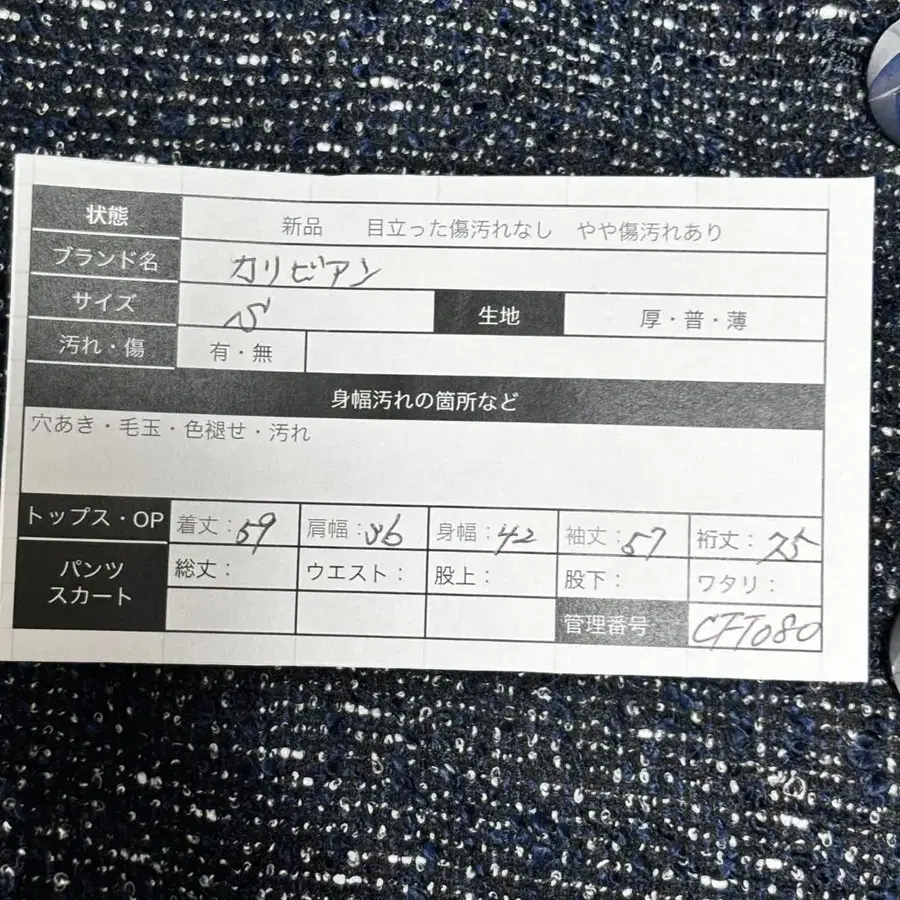 状態 新品 目立った傷汚れなし やや傷汚れあり
ブランド名 カリビアン
サイズ S 生地 厚・普・薄
汚れ・傷 有・無
身幅汚れの箇所など
穴あき・毛玉・色褪せ・汚れ
トップス・OP 着丈：59 肩幅：36 身幅：42 袖丈：57 裄丈：75
パンツ 総丈： ウエスト： 股上： 股下： ワタリ：
スカート
管理番号 CFT080